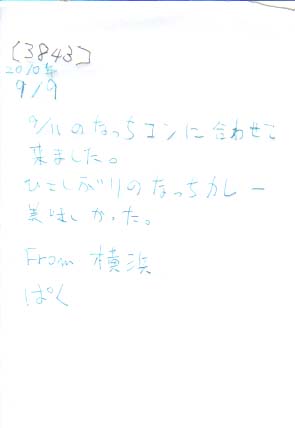 [3843]
2010年
9/9
9/11のなっちコンに合わせて
来ました。
ひさしぶりのなっちカレー
美味しかった。
From 横浜
ぱく